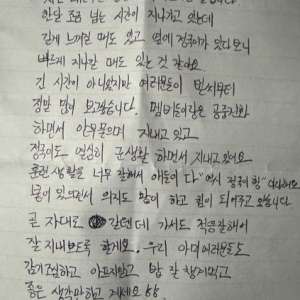 한달 조금 넘는 시간이 지나가고 있는데
길게 느껴질 때도 있고 옆에 정국이가 있다보니
빠르게 지나간 때도 있는 것 같아요
긴 시간이 아니었지만 여러분들이 벌써부터
정말 많이 보고싶습니다. 멤버들이랑은 공중전화
하면서 안부 물으며 지내고 있고
정국이도 열심히 군생활 하면서 지내고 있어요
훈련 생활을 너무 잘해서 애들이 다 "역시 정국이 형" 이러더라구요
같이 있으면서 의지도 많이 하고 힘이 되어주고 있습니다
곧 자대로 갈텐데 가서도 적응 잘해서
잘 지내보도록 할게요. 우리 아미 여러분들도
감기 조심하고 아프지말고 밥 잘 챙겨먹고
좋은 생각만하고 계세요